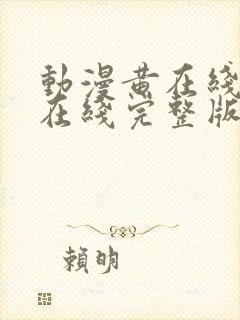 動漫黄在綫
在綫完整版
賴明